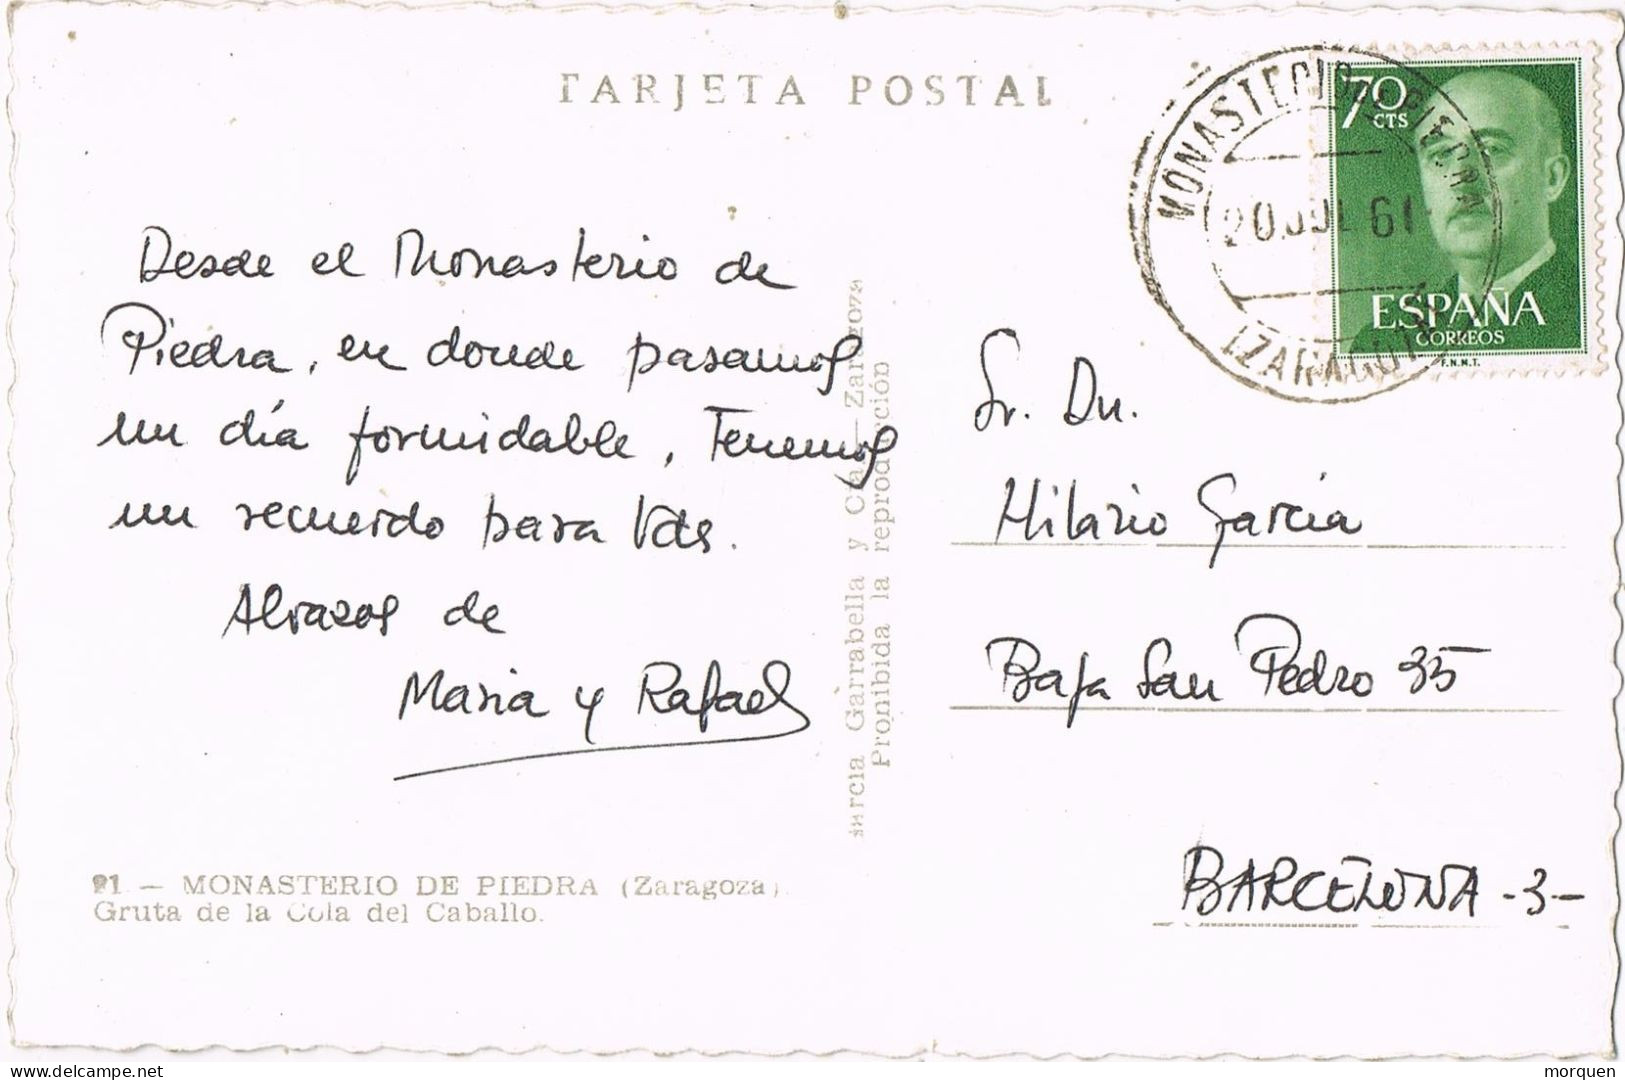 TARJETA POSTAL
MONASTERIO PIEDRA
20 JUL 61
(ZARAGOZA)
70
CTS
ESPAÑA
CORREOS
F.N.M.T.
Desde el Monasterio de
Piedra, en donde pasamos
un día formidable, Tenemos
un recuerdo para Vds.
Abrazos de
Maria y Rafael
Sr. Dn.
Hilario Garcia
Baja San Pedro 35
BARCELONA -3-
Garcia Garrabella y Cía. - Zaragoza
Prohibida la reproducción
91 — MONASTERIO DE PIEDRA (Zaragoza)
Gruta de la Cola del Caballo.
delcampe.net
morquen